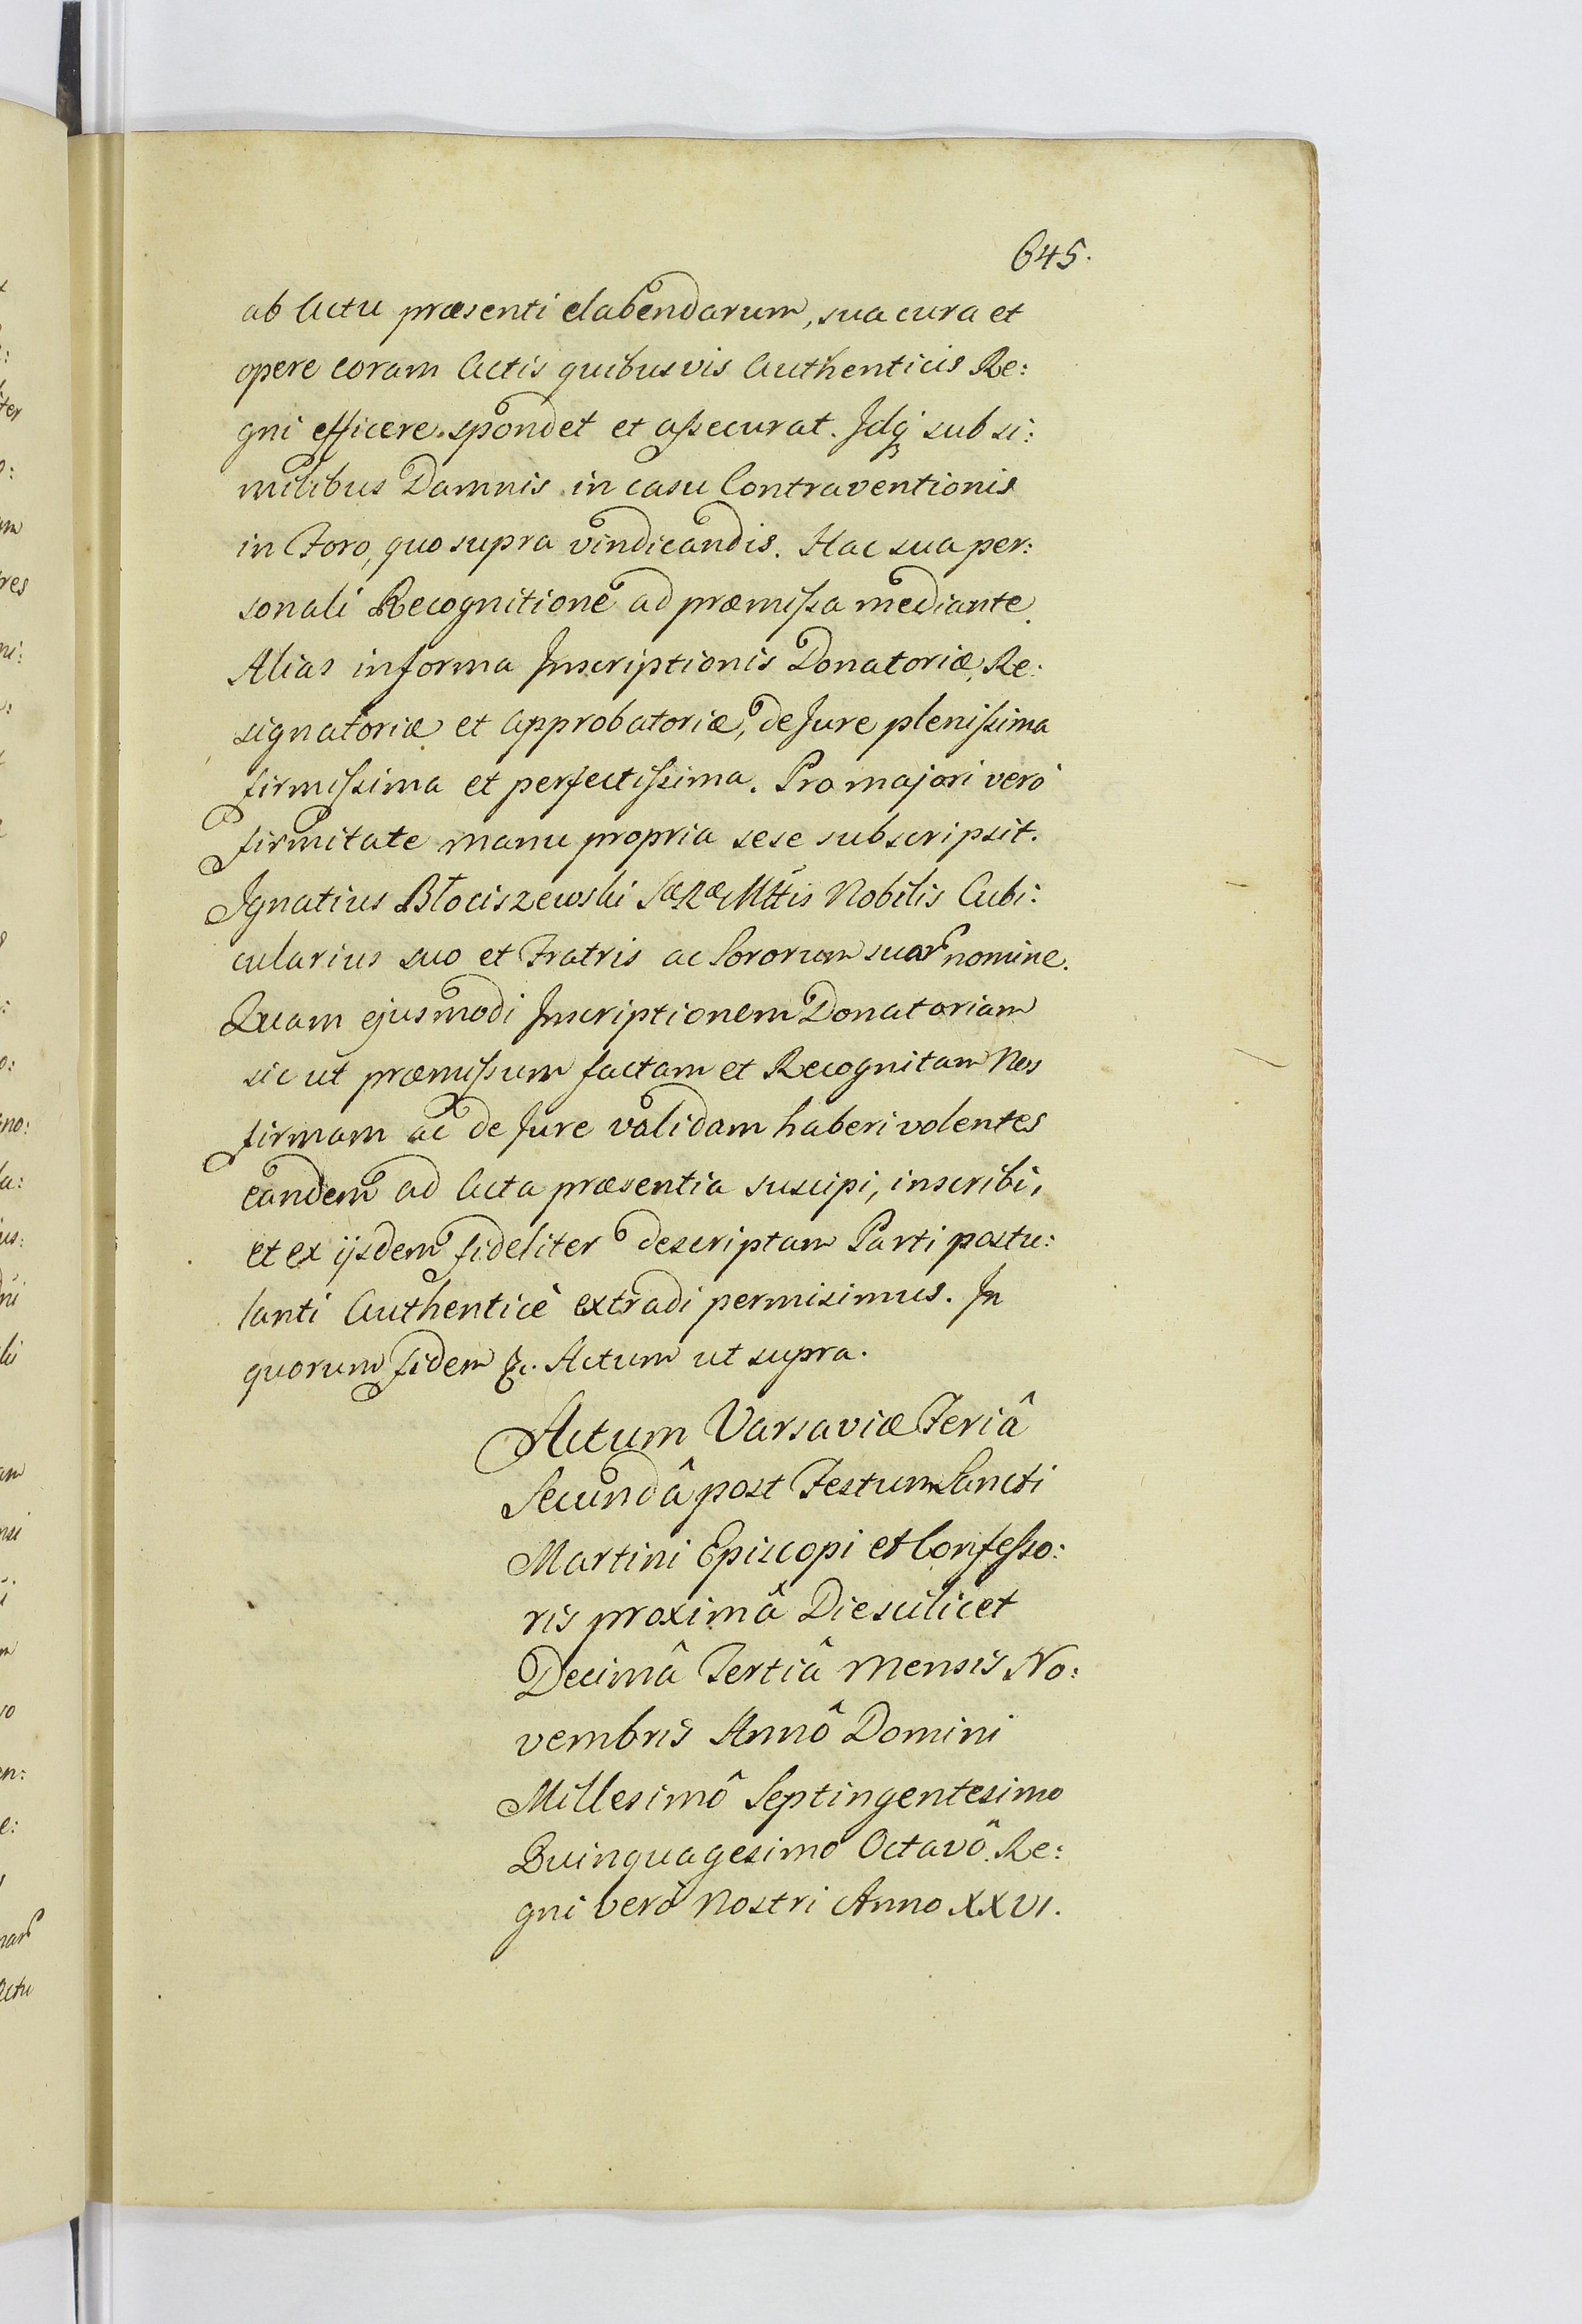 645.
ab Actu præsenti elabendarum, sua cura et
opere coram Actis quibusvis Authenticis Re:
gni efficere spondet et aſsecurat. Idq sub si:
milibus Damnis in casu Contraventionis
in Foro, quo supra vindicandis. Hac sua per:
sonali Recognitione ad præmiſsa mediante.
Alias in forma Inscriptionis Donatoriæ, Re:
signatoriæ et approbatoriæ, de Jure pleniſsima
firmiſsima et perfectiſsima. Pro majori verò
firmitate manu propria sese subscripsit.
Ignatius Błociszewski Nobilis Cubi:
cularius suo et Fratris ac Sororum suar nomine.
Quam ejusmodi Inscriptionem Donatoriam
sic ut præmiſsum factam et Recognitam Nos
firmam ac de Jure validam haberi volentes
eandem ad Acta præsentia suscipi, inscribi,
et ex ijsdem fideliter descriptam Parti postu:
lanti Authenticè extradi permisimus. In
quorum fidem &c. Actum ut supra.
Actum Varsaviæ Feriâ
Secundâ post Festum Sancti
Martini Episcopi et Confeſso:
ris proximâ Die scilicet
Decimâ Tertiâ Mensis No:
vembris Annô Domini
Millesimô Septingentesimo
Quinquagesimo Octavô. Re:
gni verò Nostri Anno XXVI.